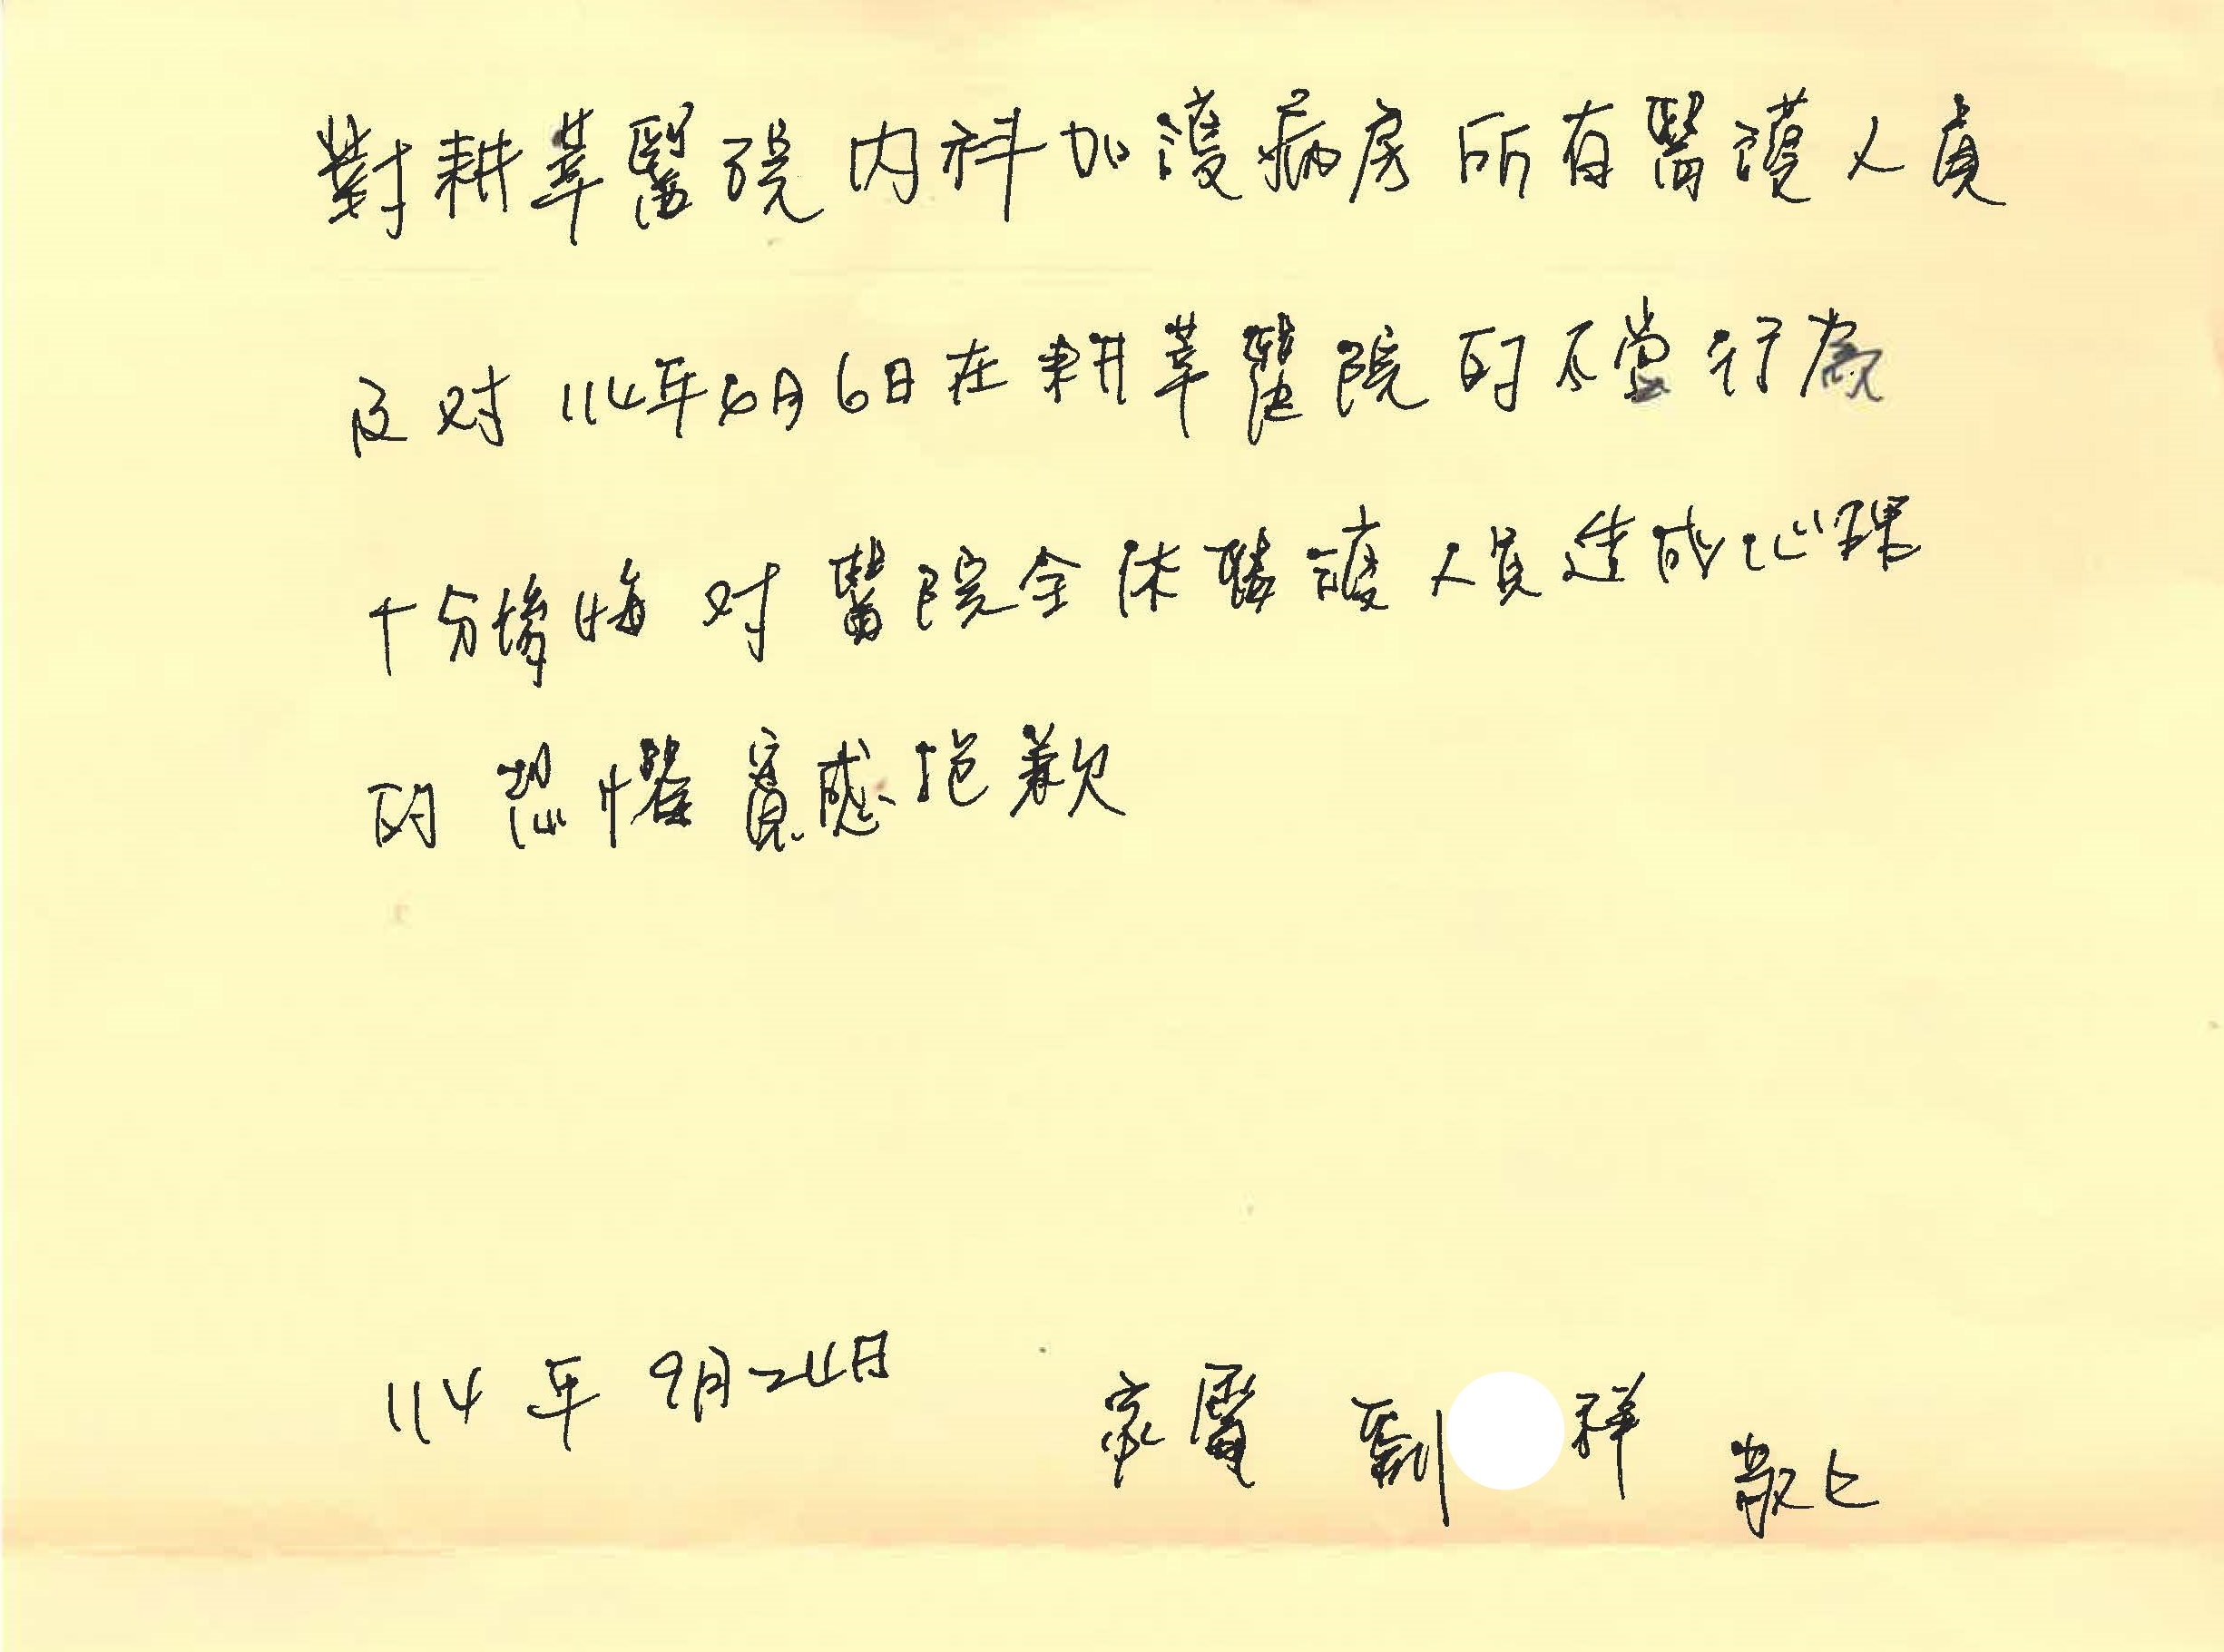 對耕莘醫院內科加護病房所有醫護人員
及对114年6月6日在耕莘醫院的不當行為
十分後悔对醫院全体醫護人員造成心理
的恐懼實感抱歉
114年9月24日 家屬 劉 祥 敬上